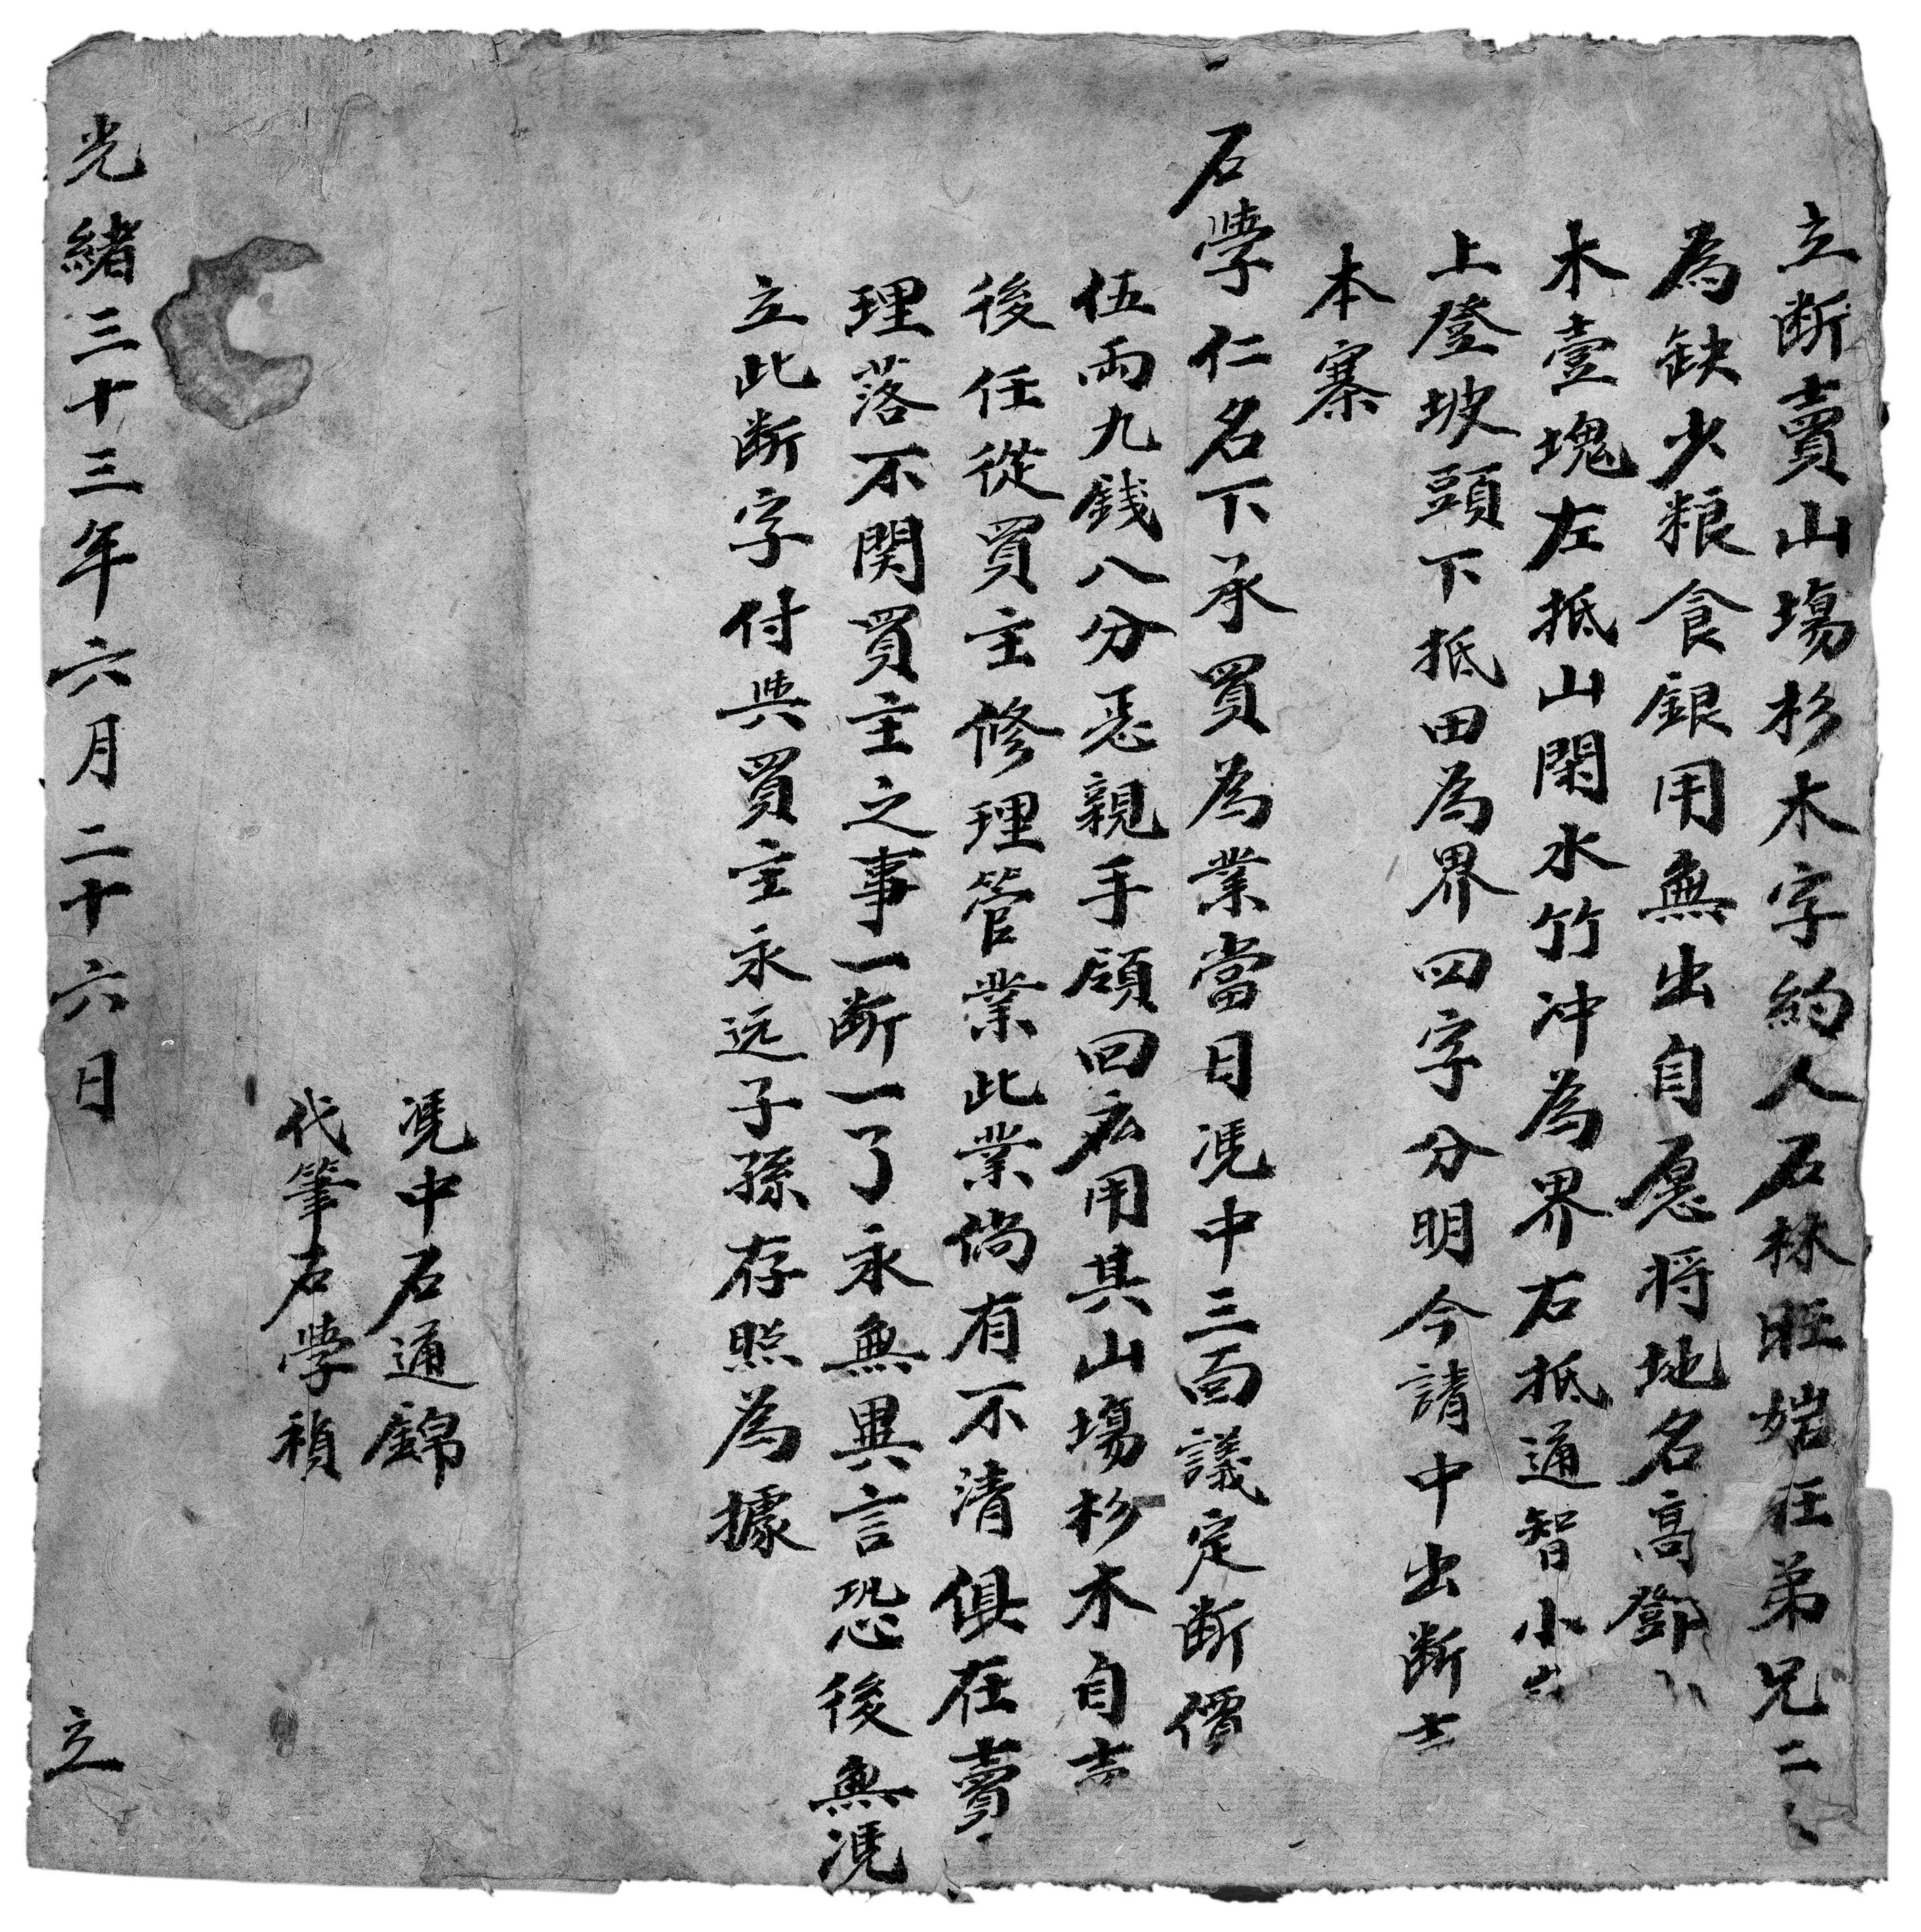 立断賣山塲杉木字約人石林旺㛃旺弟兄二
為缺少粮食銀用無出自愿将地名高鄧
木壹塊左抵山閑水竹冲為界右抵通智小
上登坡頭下抵田為界四字分明今請中出断
本寨
石學仁名下承買為業當日馮中三面議定断價
伍両九錢八分悉親手領回應用其山塲杉木自
後任從買主修理管業此業倘有不清俱在賣
理落不関買主之事一断一了永無異言恐後無馮
立此断字付與買主永远子孫存照為據
馮中石通錦
代筆石學禎
光緒三十三年六月二十六日 立